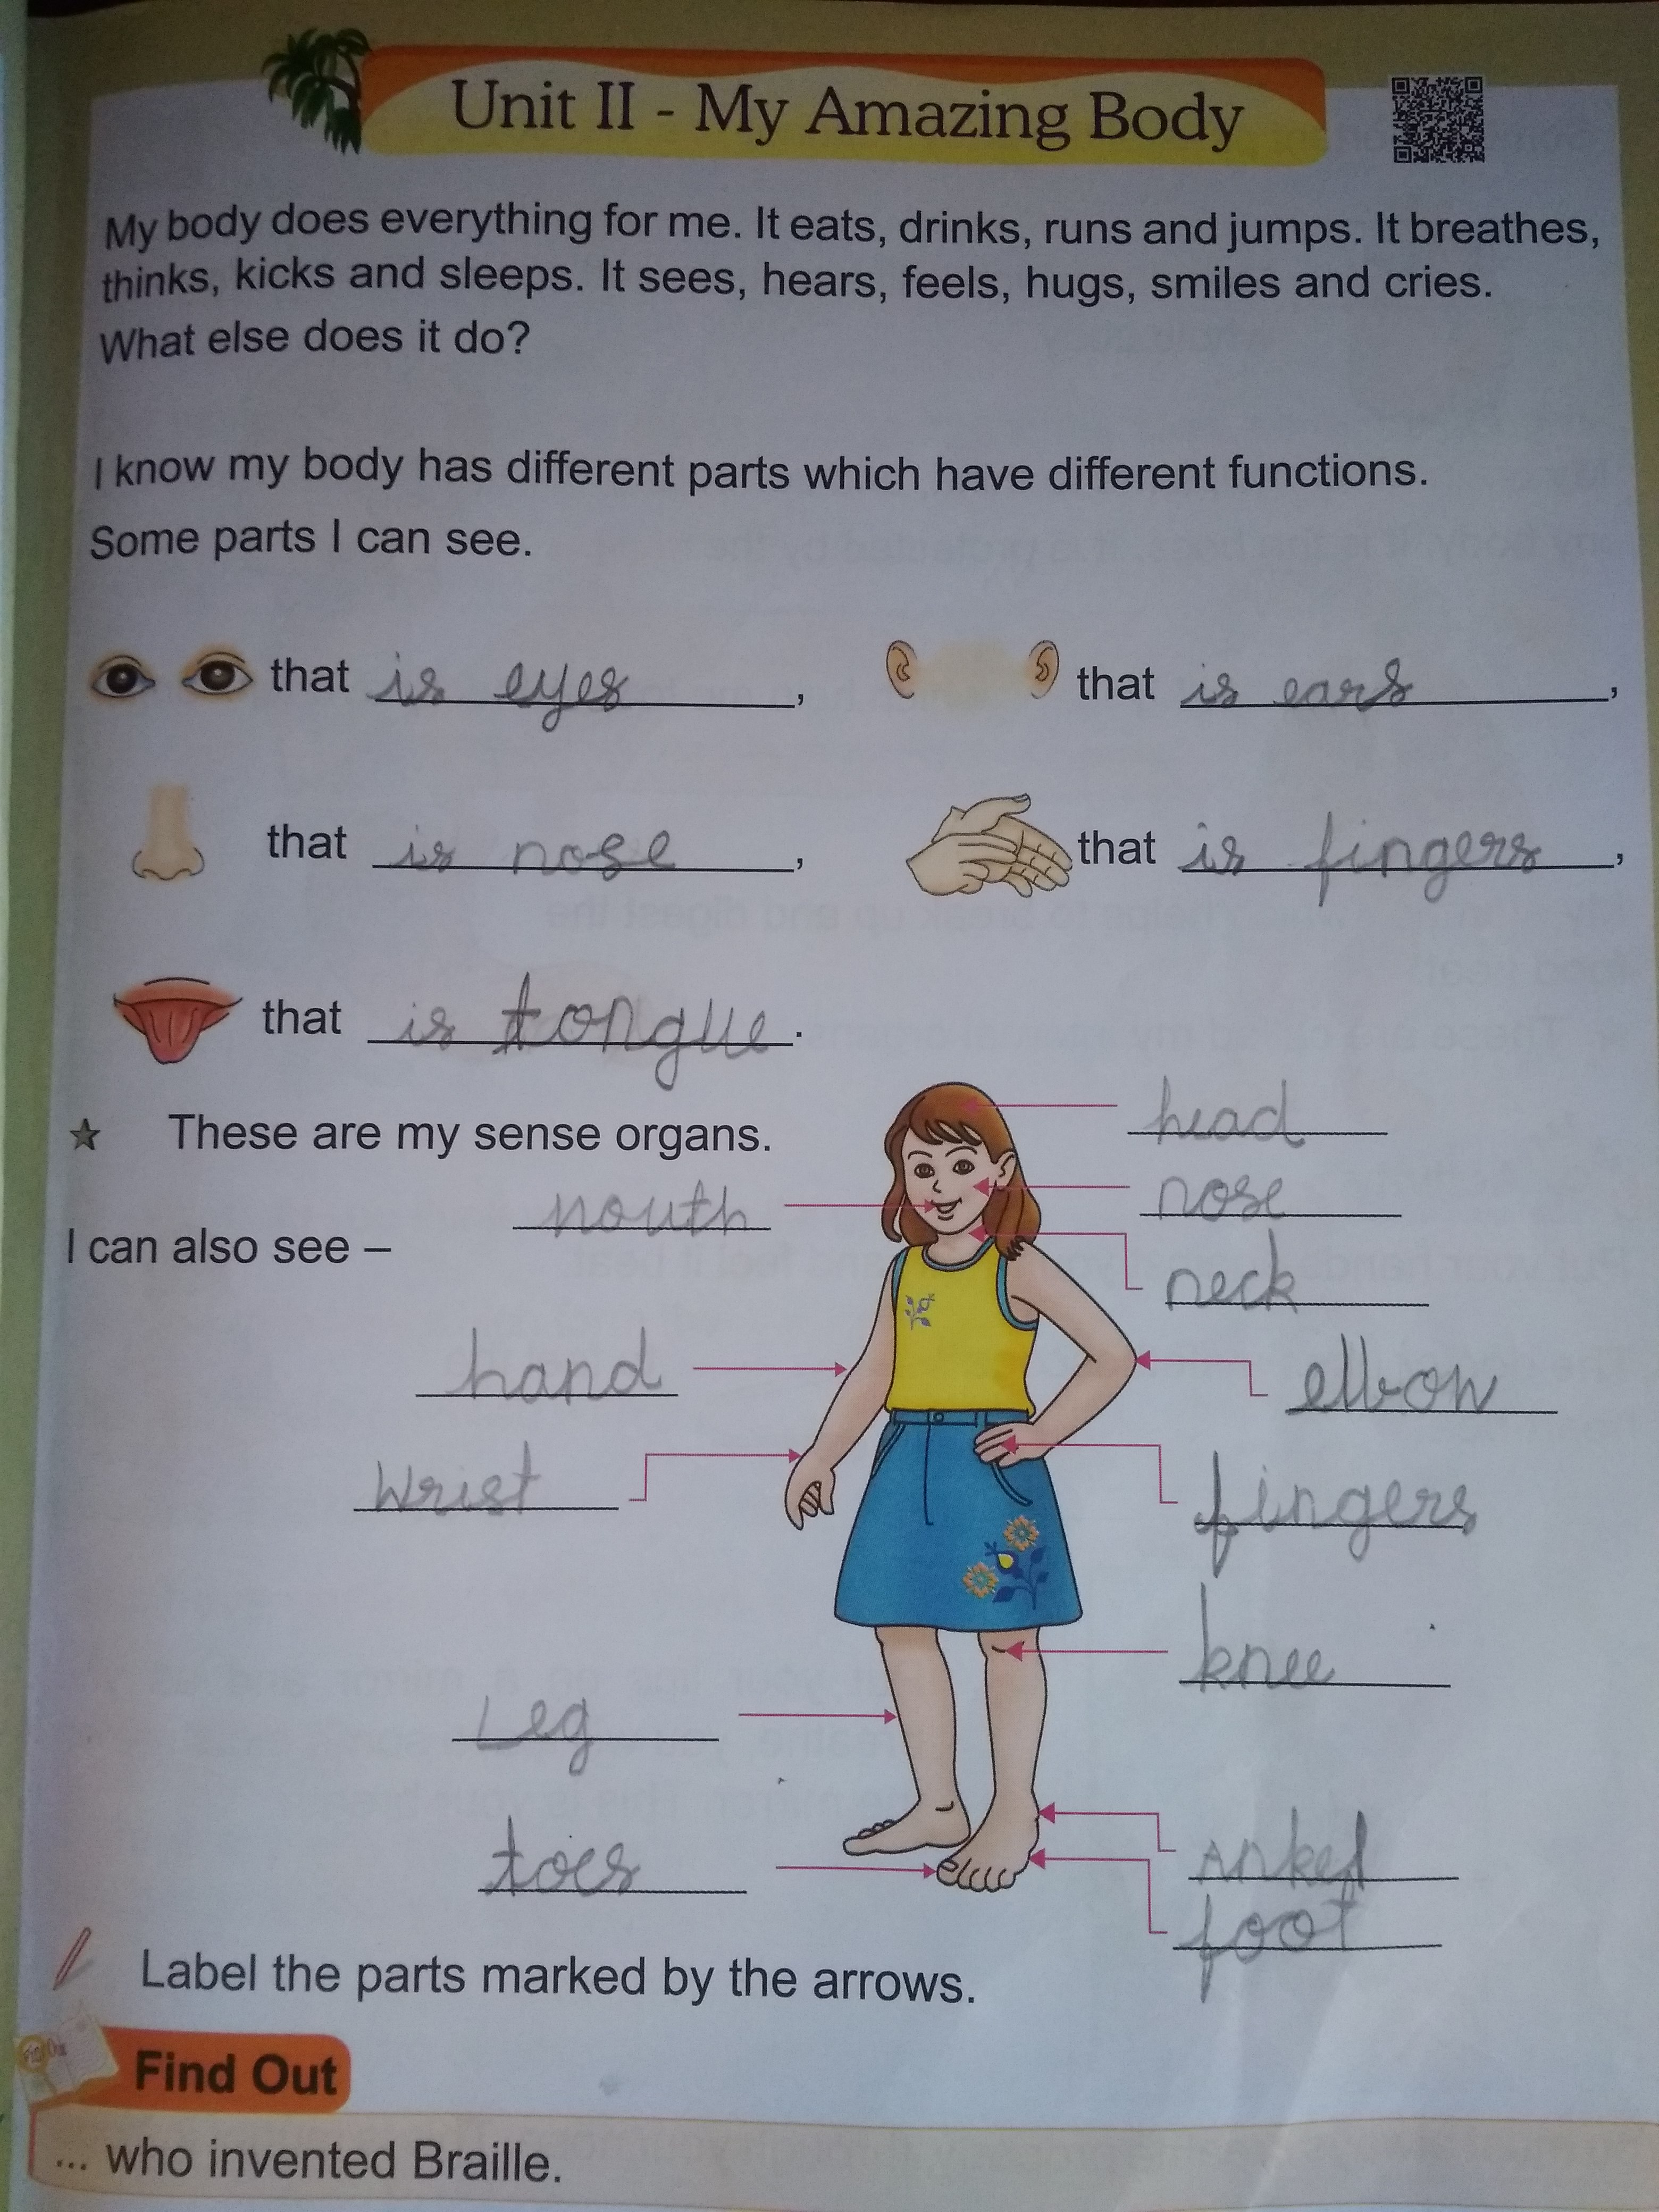 Unit II - My Amazing Body
My body does everything for me. It eats, drinks, runs and jumps. It breathes,
thinks, kicks and sleeps. It sees, hears, feels, hugs, smiles and cries.
What else does it do?
I know my body has different parts which have different functions.
Some parts I can see.
that is eyes, that is ears,
that is nose, that is fingers,
that is tongue.
head
★ These are my sense organs.
nouth nose
I can also see –
neck
hand elbow
Wrist fingers
knee
Leg
toes Anked
foot
Label the parts marked by the arrows.
Find Out
... who invented Braille.